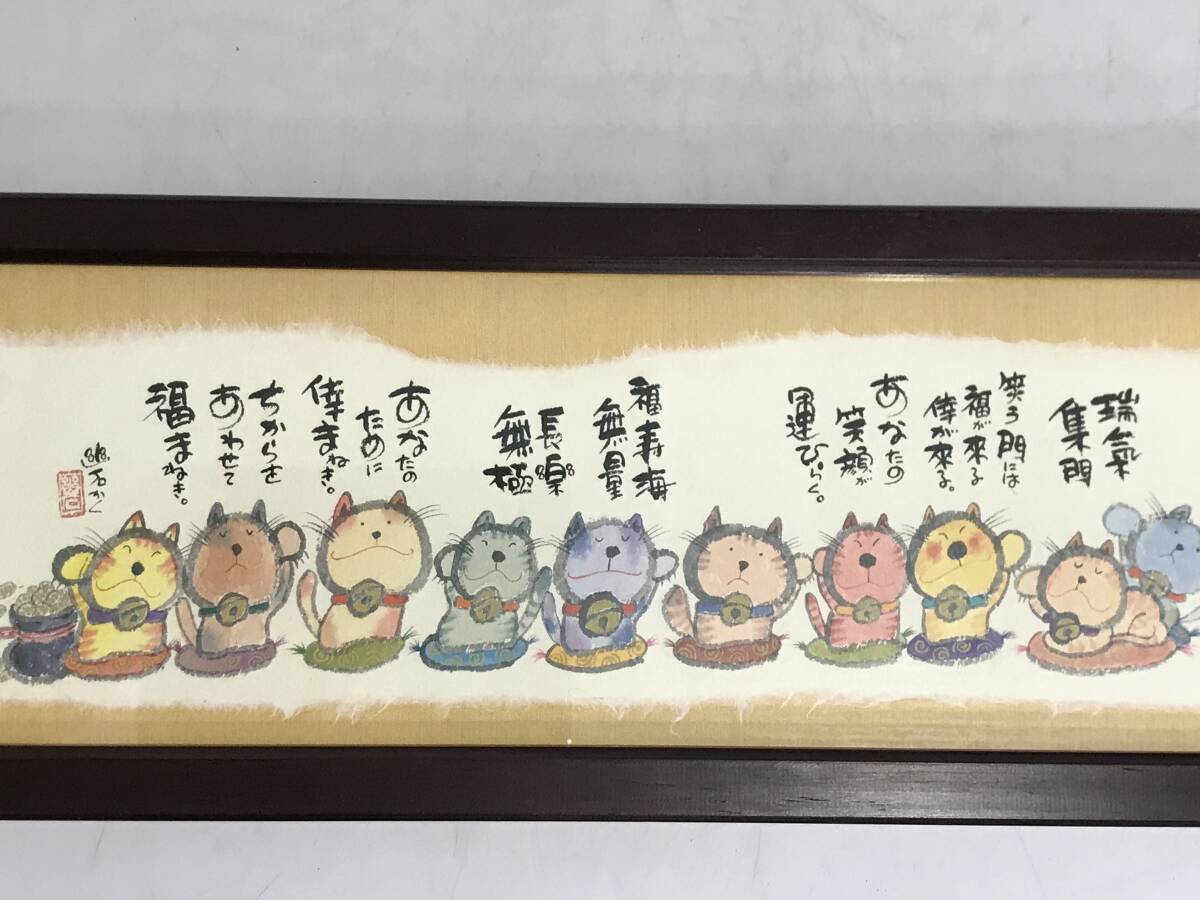 瑞氣
集門
笑う門には
福が來る
倖が來る。
あなたの
笑顔が
運ひらく。
福寿海
無量
長楽
無極
あなたの
ために
倖まねき。
ちからを
あわせて
福まねき。